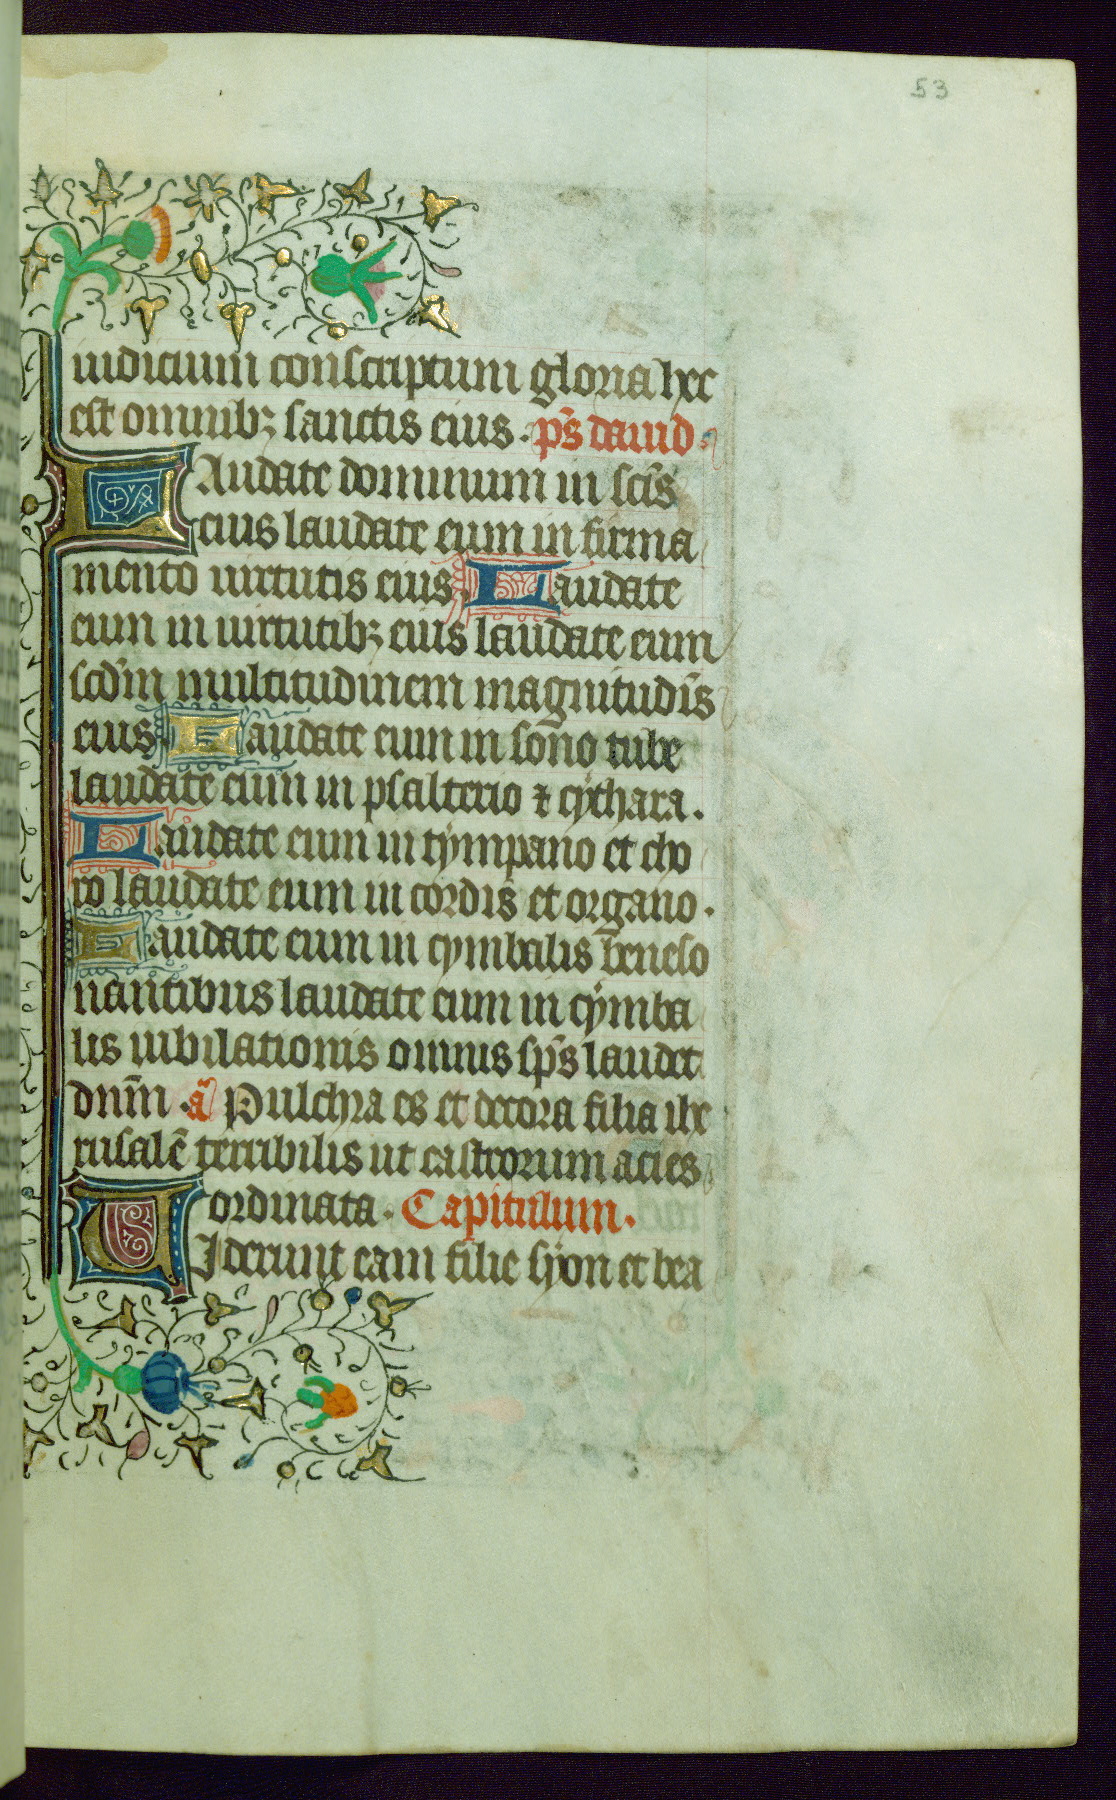 53
iudicium conscriptum gloria hec
est omnibꝫ sanctis eius. ps̄ dauid.
LAudate dominum in sc̄is
eius laudate eum in firma
mento uirtutis eius. Laudate
eum in uirtutibꝫ eius laudate eum
scd̄m multitudinem magnitudīs
eius. Laudate eum in sono tube
laudate eum in psalterio ⁊ cythara.
Laudate eum in tympano et cho
ro laudate eum in cordis et organo.
Laudate eum in cymbalis beneso
nantibus laudate eum in cymba
lis iubilationis omnis sp̄s laudet
dnm̄. a᷃ Pulchra es et decora filia ihe
rusalē terribilis ut castrorum acies
ordinata. Capitulum.
UIderunt eam filie syon et bea